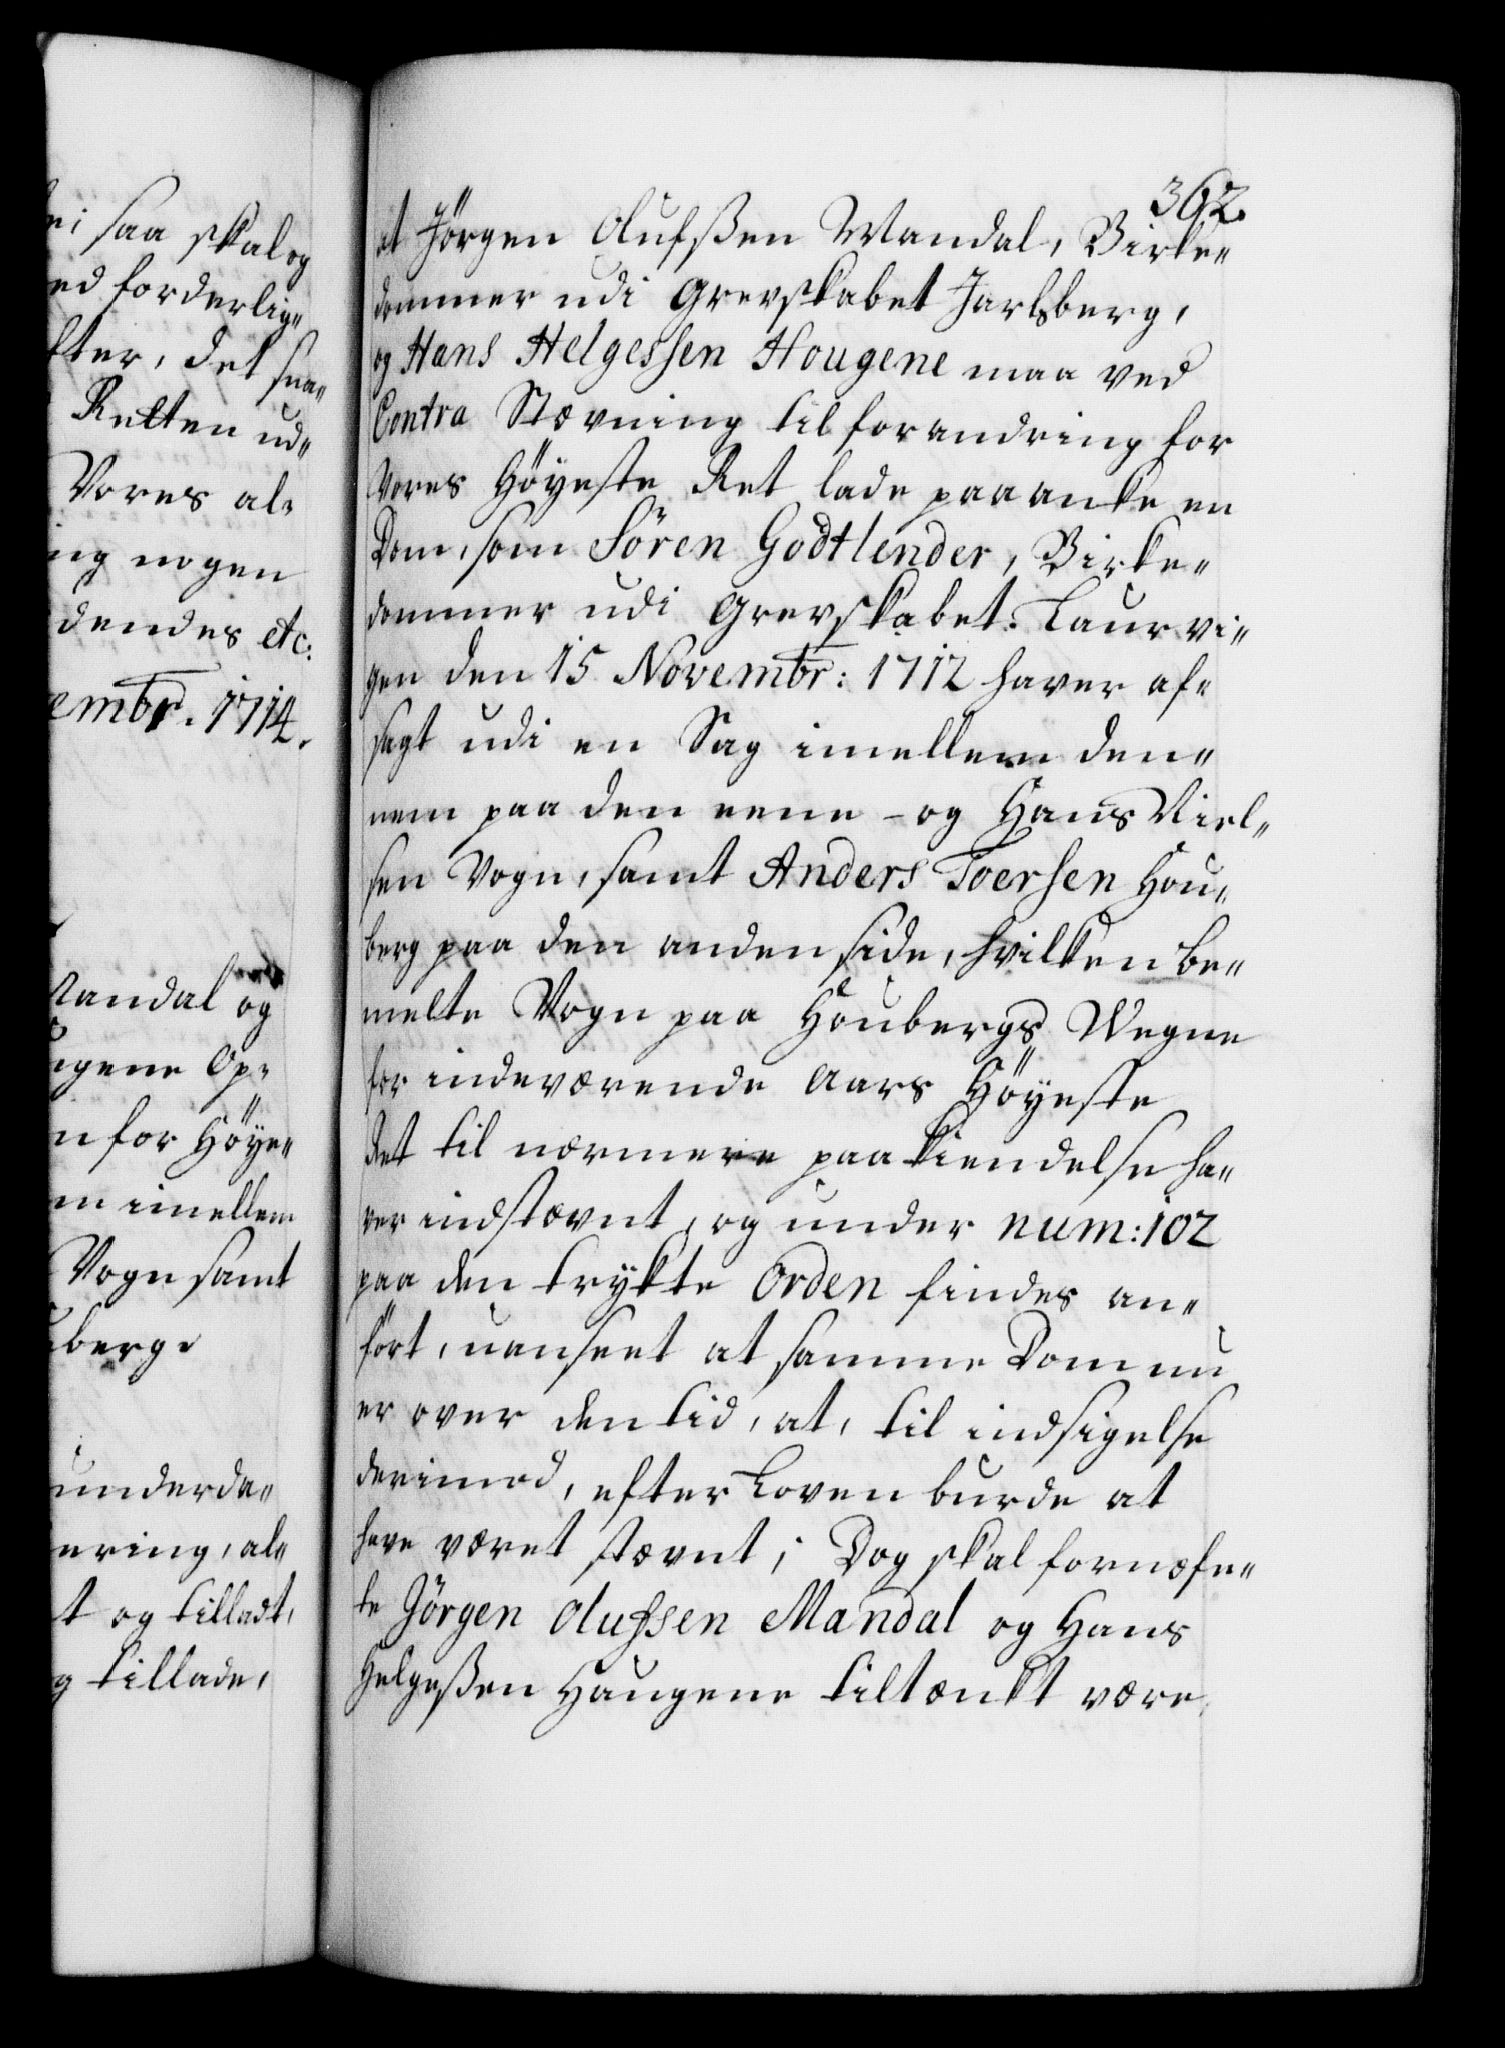 i saa skal og
ed forderlig„
fter, det saa„
Retten ud„
Vores al„
ing nogen
dendes etc:
embr. 1714.
Mandal og
ugene Op„
n for Höye„
m imellem
Vogn samt
uberg.
underda„
nering, al„
t og tilladt,
g tillade,
362.
at Jörgen Olufssen Mandal, Birke„
dommer udi Grevskabet Jarlsberg,
og Hans Helgessen Hougene maa ved
Contra Stævning til forandring for
Vores Höyeste Ret lade paaanke en
Dom, som Sören Godtlender, Birke„
dommer udi Grevskabet Laurvi„
gen den 15 Novembr: 1712 haver af„
sagt udi en Sag imellem den„
nem paa den eene - og Hans Niel„
sen Vogn, samt Anders Toersen Hou„
berg paa den anden side, hvilken be„
melte Vogn paa Houbergs Wegne
for indeværende Aars Höyeste
Ret til nærmere paakiendelse ha„
ver indstævnt, og under num: 102
paa den trykte Orden findes an„
fört, uanseet at samme Dom nu
er over den tid, at, til indsigelse
derimod, efter Loven burde at
have været stævnt; Dog skal fornæfn„
te Jörgen Olufssen Mandal og Hans
Helgessen Haugene tiltænkt være,